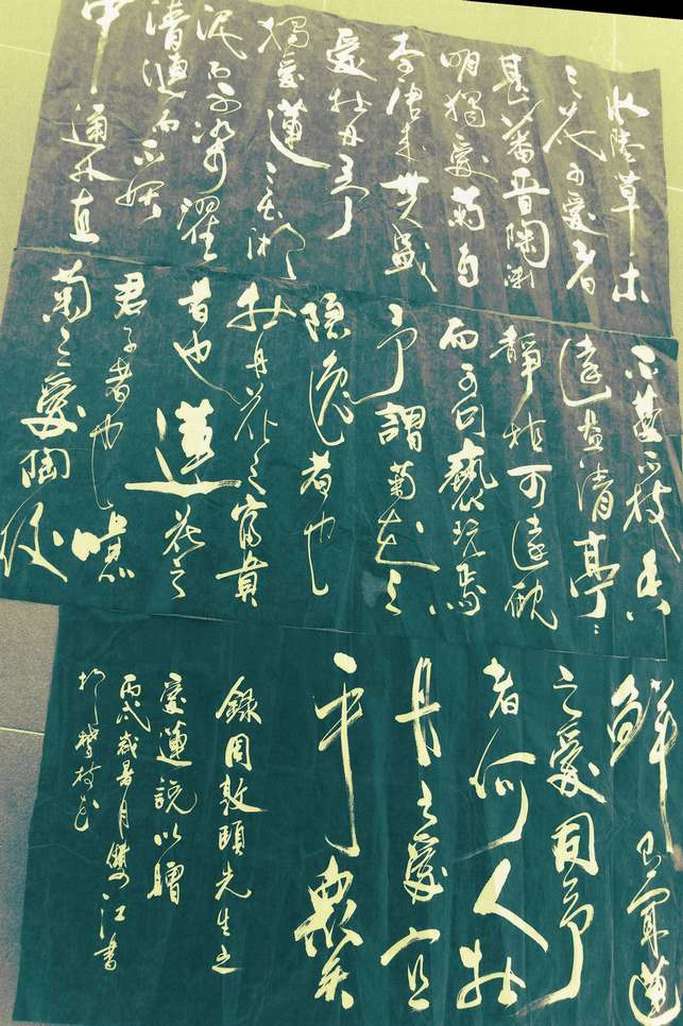 水陸草木
之花可愛者
甚蕃晉陶淵
明獨愛菊自
李唐來世盛
愛牡丹予
獨愛蓮之出淤
泥而不染濯
清漣而不妖
中通外直
不蔓不枝香
遠益清亭〻
靜植可遠觀
而不可褻玩焉
予謂菊花之
隱逸者也
牡丹花之富貴
者也蓮花之
君子者也噫
菊之愛陶後
鮮有聞蓮
之愛同予
者何人牡
丹之愛宜
乎眾矣
錄周敦頤先生之
愛蓮說以贈
丙戌歲暑月雙江書